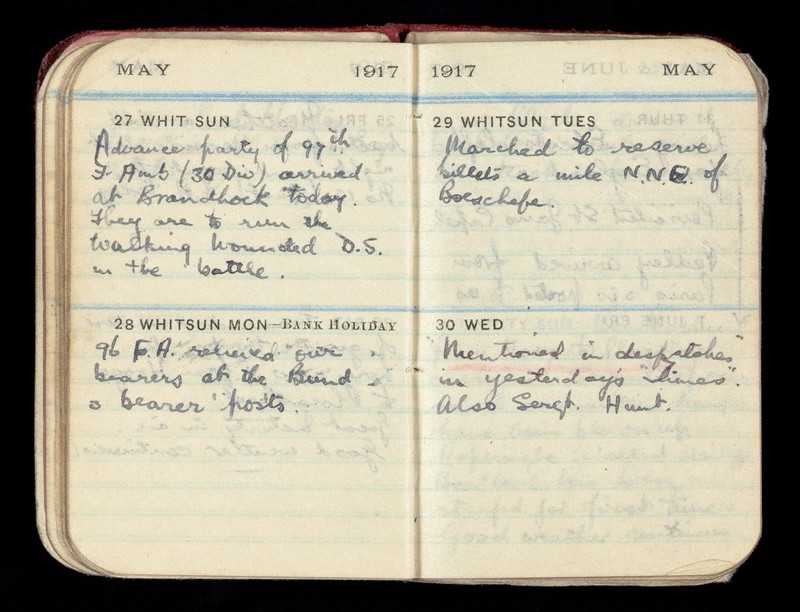 MAY 1917
27 WHIT SUN
Advance party of 97th
F Amb (30 Div) arrived
at Brandhoek today.
They are to run the
walking wounded D.S.
in the battle.
28 WHITSUN MON—BANK HOLIDAY
96 F.A. relieved our
bearers at the Bund
& bearer posts.
1917 MAY
29 WHITSUN TUES
Marched to reserve
billets a mile N.N.E. of
Boeschepe.
30 WED
"Mentioned in despatches"
in yesterday's "Times".
Also Sergt. Hunt.